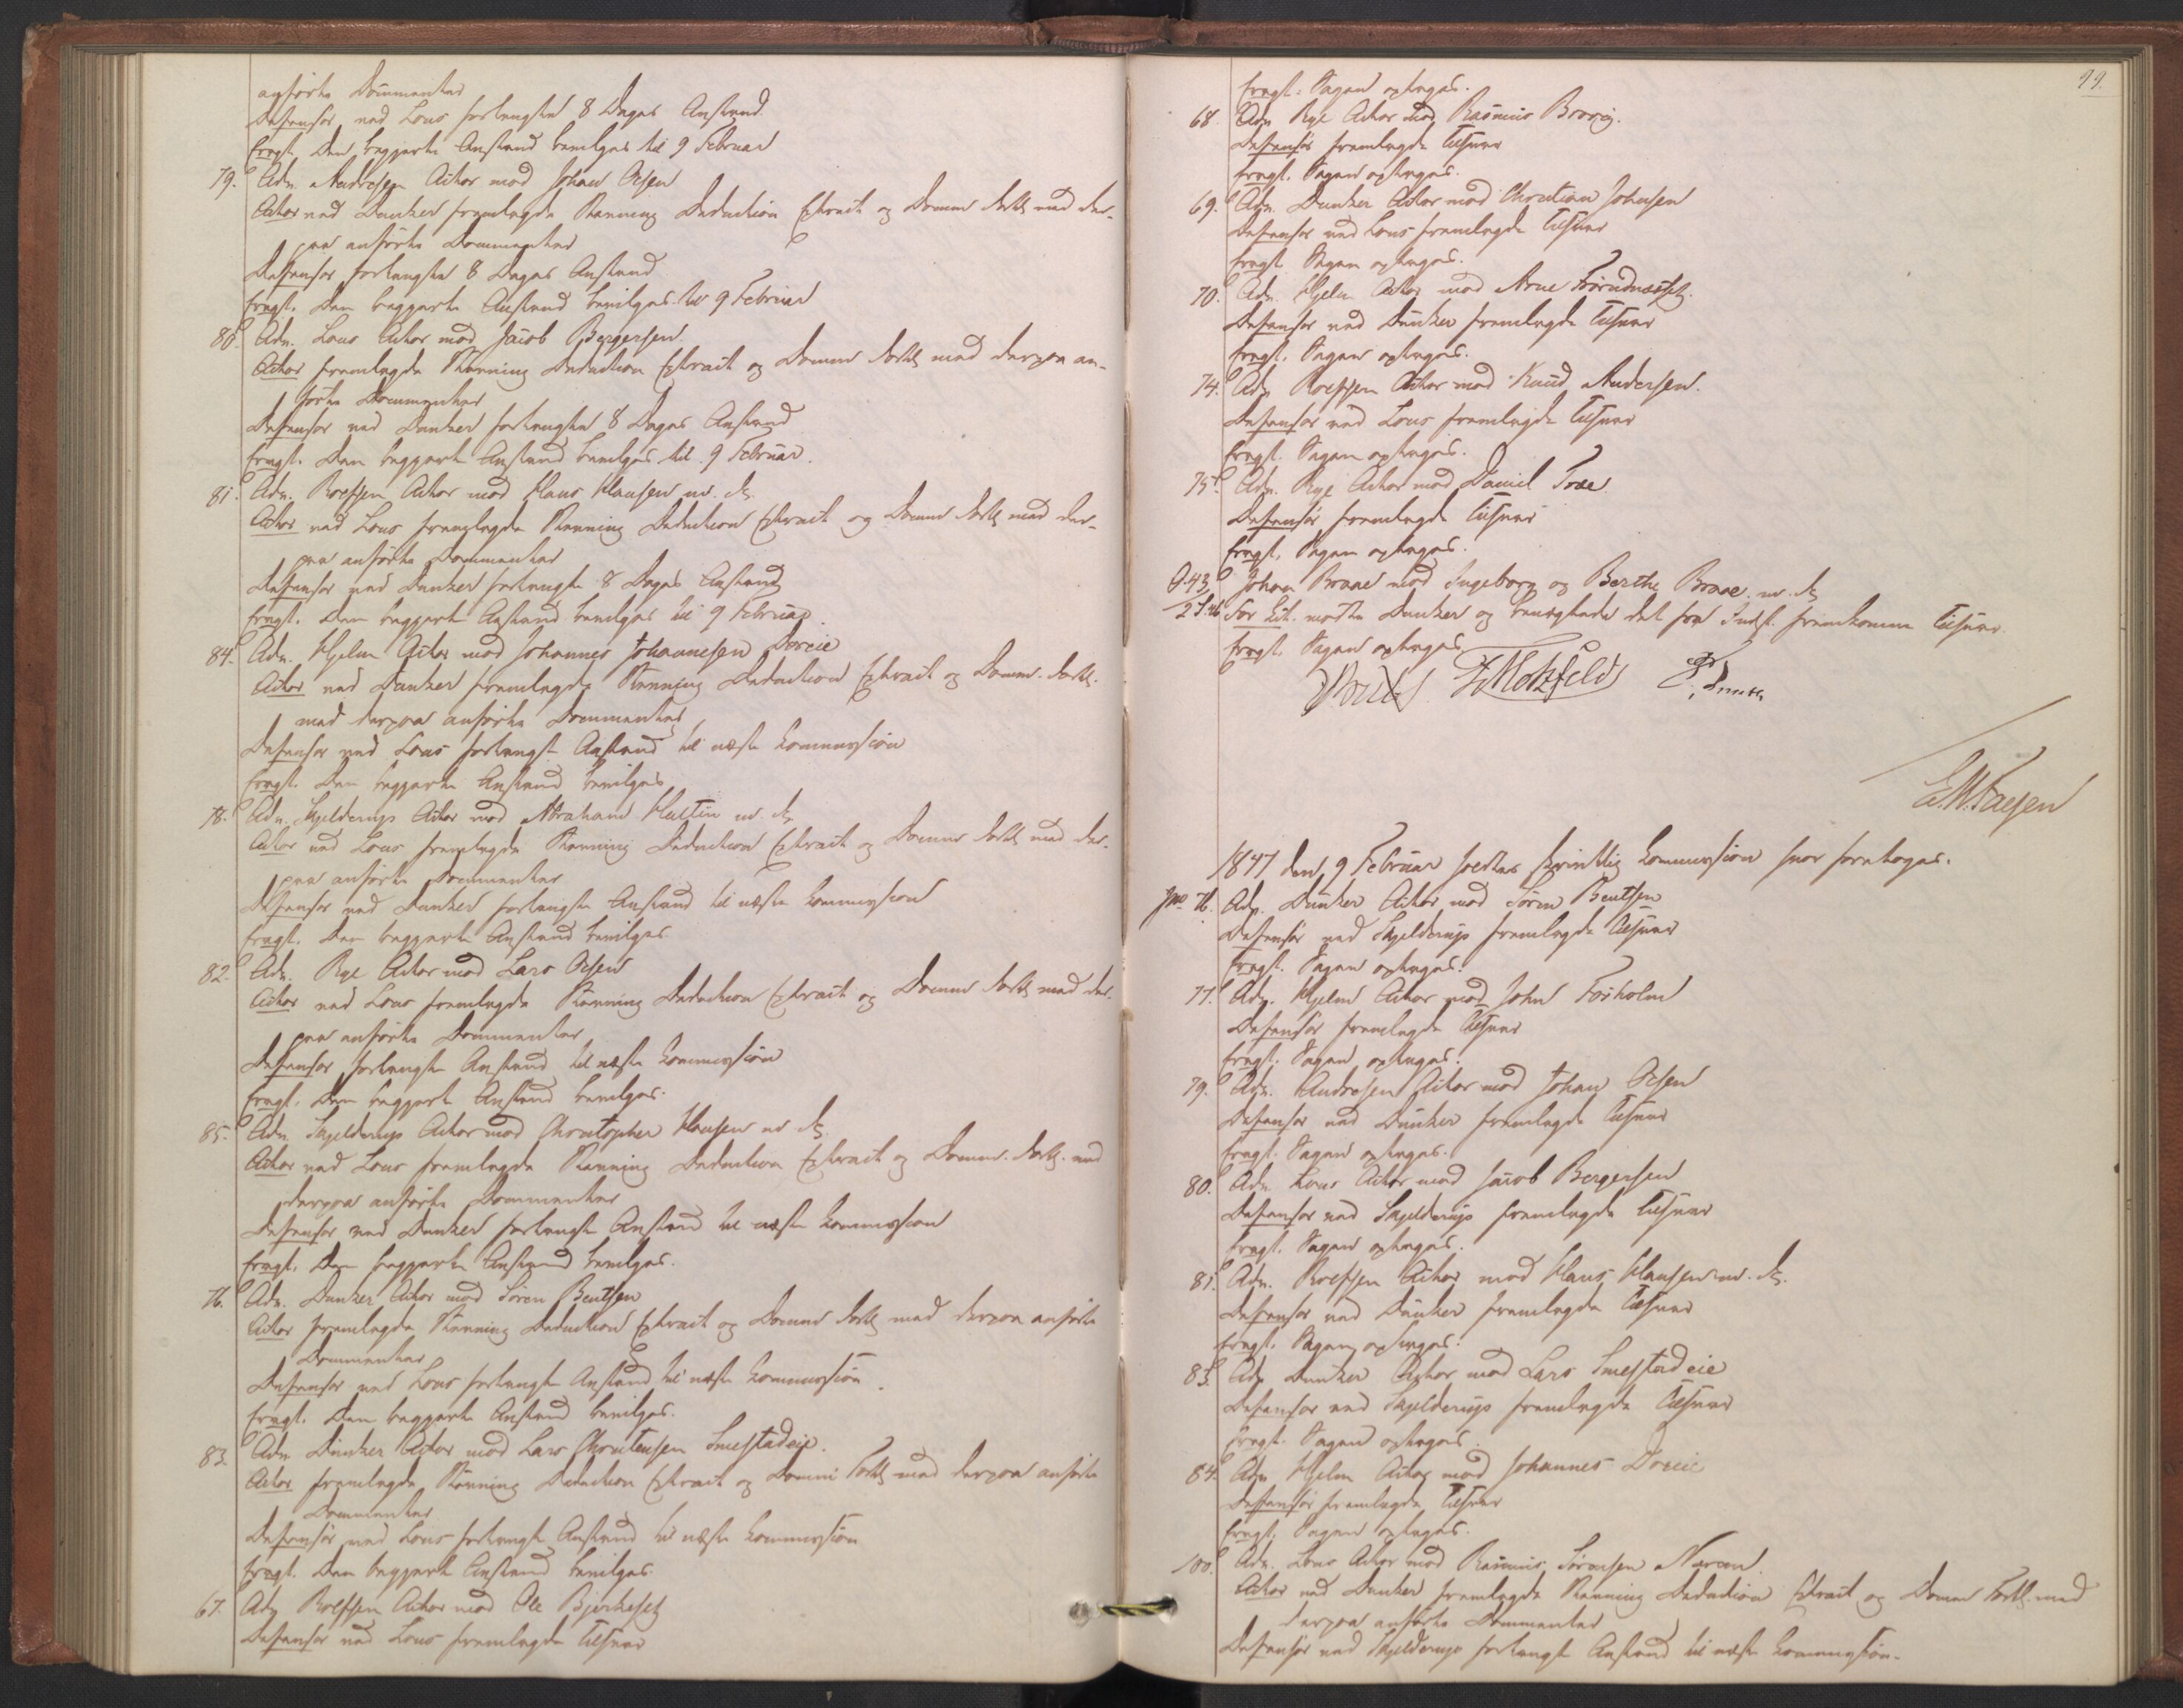 anførte Documenter
Defensor ved Lous forlangte 8 Dages Anstand.
Eragt. Den begjærte Anstand bevilges til 9 Februar
79. Adv. Andresen Actor mod Johan Olsen
Actor ved Dunker fremlagde Stævning Deduction Extract og Domme Forkl med der-
paa anførte Documenter
Defensor forlangte 8 Dages Anstand
Eragt. Den begjærte Anstand bevilges til 9 Februar
80. Adv. Lous Actor mod Jacob Bergersen.
Actor fremlagde Stævning Deduction Extract og Domme Forkl med derpaa an-
førte Documenter
Defensor ved Dunker forlangte 8 Dages Anstand
Eragt. Den begjærte Anstand bevilges til 9 Februar.
81. Adv. Rolfsen Actor mod Hans Hansen m. fl.
Actor ved Lous fremlagde Stævning Deduction Extract og Domme Forkl med der-
paa anførte Documenter
Defensor ved Dunker forlangte 8 Dages Anstand
Eragt. Den begjærte Anstand bevilges til 9 Februar.
84. Adv. Hjelm Actor mod Johannes Johannesen Doreie
Actor ved Dunker fremlagde Stævning Deduction Extract og Domme Forkl.
med derpaa anførte Documenter
Defensor ved Lous forlangte Anstand til næste Commission
Eragt. Den begjærte Anstand bevilges
78. Adv. Skjelderup Actor mod Abraham Hultin m. fl.
Actor ved Lous fremlagde Stævning Deduction Extract og Domme Forkl med der-
paa anførte Documenter
Defensor ved Dunker forlangte Anstand til næste Commission
Eragt. Den begjærte Anstand bevilges.
82. Adv. Rye Actor mod Lars Olsen
Actor ved Lous fremlagde Stævning Deduction Extract og Domme Forkl med der-
paa anførte Documenter
Defensor forlangte Anstand til næste Commission
Eragt. Den begjærte Anstand bevilges.
85. Adv. Skjelderup Actor mod Christopher Hansen m. fl.
Actor ved Lous fremlagde Stævning Deduction Extract og Domme Forkl. med
derpaa anførte Documenter
Defensor ved Dunker forlangte Anstand til næste Commission
Eragt. Den begjærte Anstand bevilges.
76. Adv. Dunker Actor mod Søren Bentsen
Actor fremlagde Stævning Deduction Extract og Domme Forkl med derpaa anførte
Documenter
Defensor ved Lous forlangte Anstand til næste Commission.
Eragt. Den begjærte Anstand bevilges.
83. Adv. Dunker Actor mod Lars Christensen Smestadeie.
Actor fremlagde Stævning Deduction Extract og Domme Forkl med derpaa anførte
Documenter
Defensor ved Lous forlangte Anstand til næste Commission
Eragt. Den begjærte Anstand bevilges.
67. Adv Rolfsen Actor mod Ole Bjerkeset
Defensor ved Lous fremlagde Tilsvar
99.
Eragt. Sagen optages.
68. Adv Rye Actor mod Rasmus Brovig.
Defensor fremlagde Tilsvar
Eragt. Sagen optages.
69. Adv. Dunker Actor mod Christian Johnsen
Defensor ved Lous fremlagde Tilsvar
Eragt. Sagen optages.
70. Adv. Hjelm Actor mod Arne
Defensor ved Dunker fremlagde Tilsvar
Eragt. Sagen optages.
74. Adv Rolfsen Actor mod Knud Andersen.
Defensor ved Lous fremlagde Tilsvar
Eragt. Sagen optages.
75. Adv. Rye Actor mod Daniel Troe.
Defensor fremlagde Tilsvar
Eragt. Sagen optages.
Johan Braae mod Ingeborg og Berthe Braae m. fl.
For Cit. mødte Dunker og benægtede det fra Indst. fremkomne Tilsvar.
Eragt. Sagen optages
Motzfeldt
1847 den 9 Februar holdtes skriftlig Commission hvor foretoges.
No. 76. Adv. Dunker Actor mod Søren Bentsen
Defensor ved Skjelderup fremlagde Tilsvar
Eragt. Sagen optages.
77. Adv. Hjelm Actor mod John Forholm
Defensor fremlagde Tilsvar
Eragt. Sagen optages.
79. Adv. Andresen Actor mod Johan Olsen
Defensor ved Dunker fremlagde Tilsvar
Eragt. Sagen optages.
80. Adv. Lous Actor mod Jacob Bergersen
Defensor ved Skjelderup fremlagde Tilsvar
Eragt. Sagen optages.
81. Adv. Rolfsen Actor mod Hans Hansen m. fl.
Defensor ved Dunker fremlagde Tilsvar
Eragt. Sagen optages.
83. Adv Dunker Actor mod Lars Smestadeie
Defensor ved Skjelderup fremlagde Tilsvar
Eragt. Sagen optages.
84. Adv Hjelm Actor mod Johannes Doreie
Defensor fremlagde Tilsvar
Eragt. Sagen optages.
100. Adv. Lous Actor mod Rasmus Sørensen
Actor ved Dunker fremlagde Stævning Deduction Extract og Domme Forkl. med
derpaa anførte Documenter
Defensor ved Skjelderup forlangte Anstand til næste Commission.